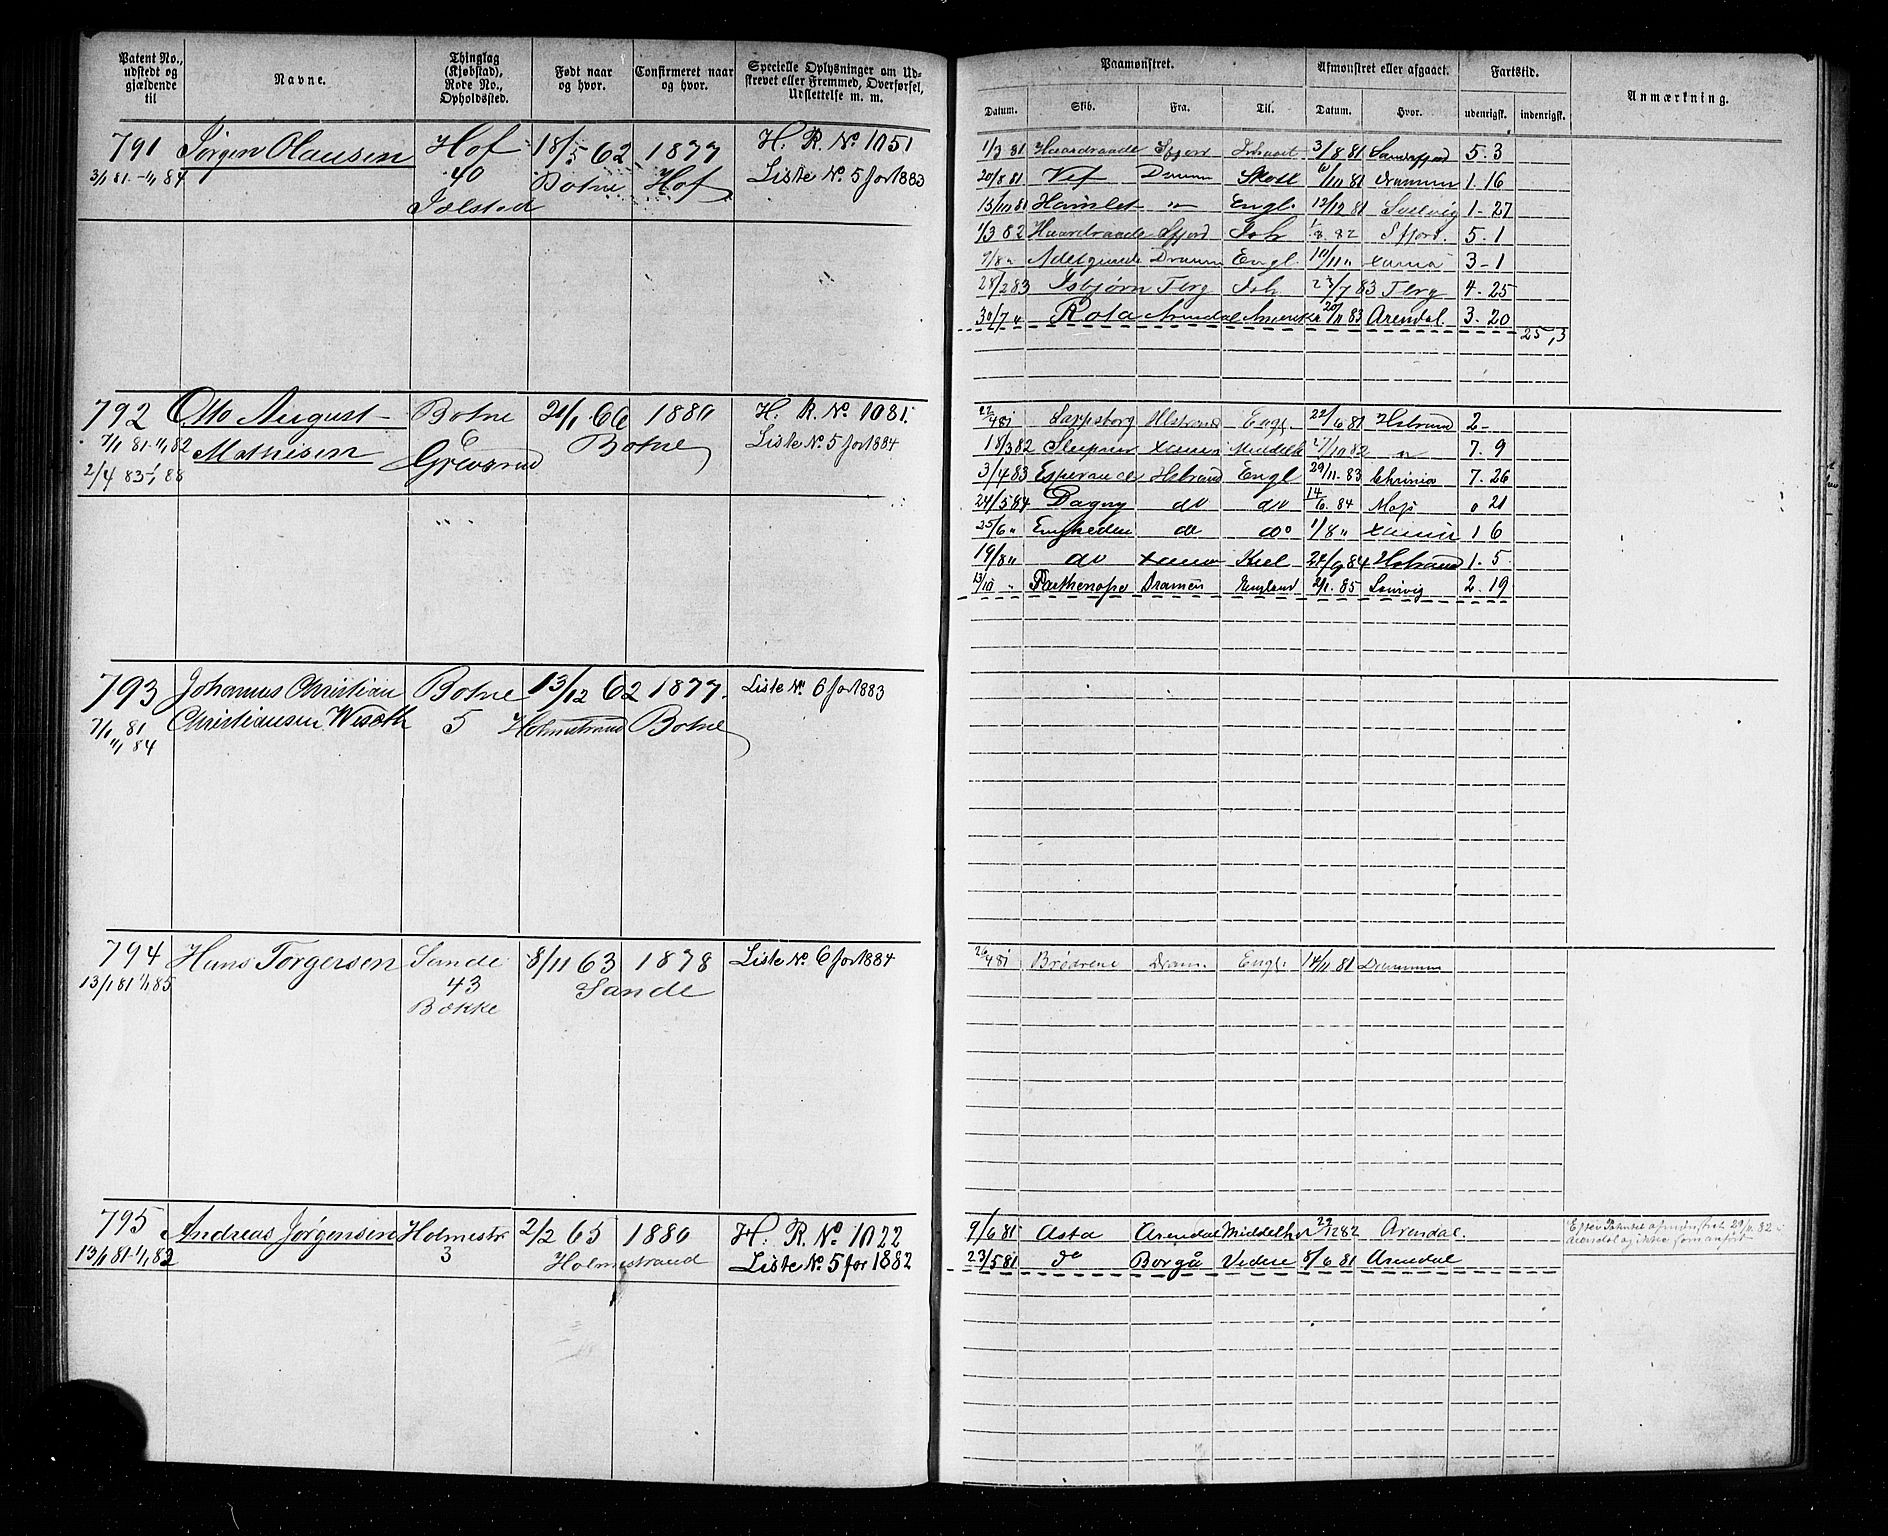 Patent No., udstedt og gjældende til
Navne.
Thinglag (Kjøbstad), Rode No., Opholdssted.
Født naar og hvor.
Confirmeret naar og hvor.
Specielle Oplysninger om Udskrevet eller Fremmed, Overførsel, Udslettelse m. m.
Paamønstret.
Afmønstret eller afgaaet.
Fartstid.
Anmærkning.
Datum. Skib. Fra. Til. Datum. Hvor. udenrigsk. indenrigsk.
791 Jørgen Olausen Hof 18/5 62 1877 H. R. No 1051
3/1 81 - 1/1 84 40 Botne Hof Liste No. 5 for 1883
1/3 81 Haardraade Sfjord Ishavet 3/8 81 Sandefjord 5. 3
20/8 81 Vif Dramm /11 81 Drammen 1. 16
13/11 81 Hamlet " Engl. 12/12 81 Svelvig 1 - 27
1/3 82 Haardraade Sfjord Ish 1/8. 82 Sfjord. 5. 1
Dramm Engl. 10/11 " 3 - 1
28/2 83 Isbjørn Tbrg Ish 23/7 83 Tbrg 4. 25
30/7 " Rota Arendal Amerika 20/11 83 Arendal 3. 20
25,3
792 Otto August Botne 21/1 66 1880 H. R. No. 1081.
7/1 81 - 1/1 82 Mathisen 6 Botne Liste No. 5 for 1884
2/4 83 - 1/1 88
27/4 81 Sarpsborg Hstrand Engl. 22/6 81 Hstrand 2 -
18/3 82 Sleipner Xania Middelh 27/10 82 " 7. 9
3/4 83 Esperance Hstrand Engl 29/11. 83 Chrinia 7. 26
24/5 84 Dagny do do 14/6. 84 Moss 0 21
25/6 " Enigheden do do 1/8 " Xania 1 6
19/8 " do Xania Kiel 24/9 84 Hstrand 1. 5
13/10 " Parthenope Dramen England 2/1. 85 2. 19
793 Johannes Christian Botne 13/12 62 1877. Liste No. 6 for 1883
7/1 81 Christiansen Wisøth 5 Holmestrand Botne
1/1 84
794 Hans Torgersen Sande 8/11 63 1878 Liste No. 6 for 1884
13/1 81 1/1 85 43 Sande
Bække
26/4 81 Brødrene Dram. Engl. 14/11 81 Drammen
795 Andreas Jørgensen Holmestr 2/2 65 1880 H. R. No. 1022
13/1 81 - 1/1 83 3 Holmestrand Liste No. 5 for 1882
9/6 81 Asta Arendal Middelhav 82 Arendal.
23/5 81 do Borgå 8/6 81 Arendal
Efter Patentet afmønstret 29/11. 82 i
Arendal og ikke som anført